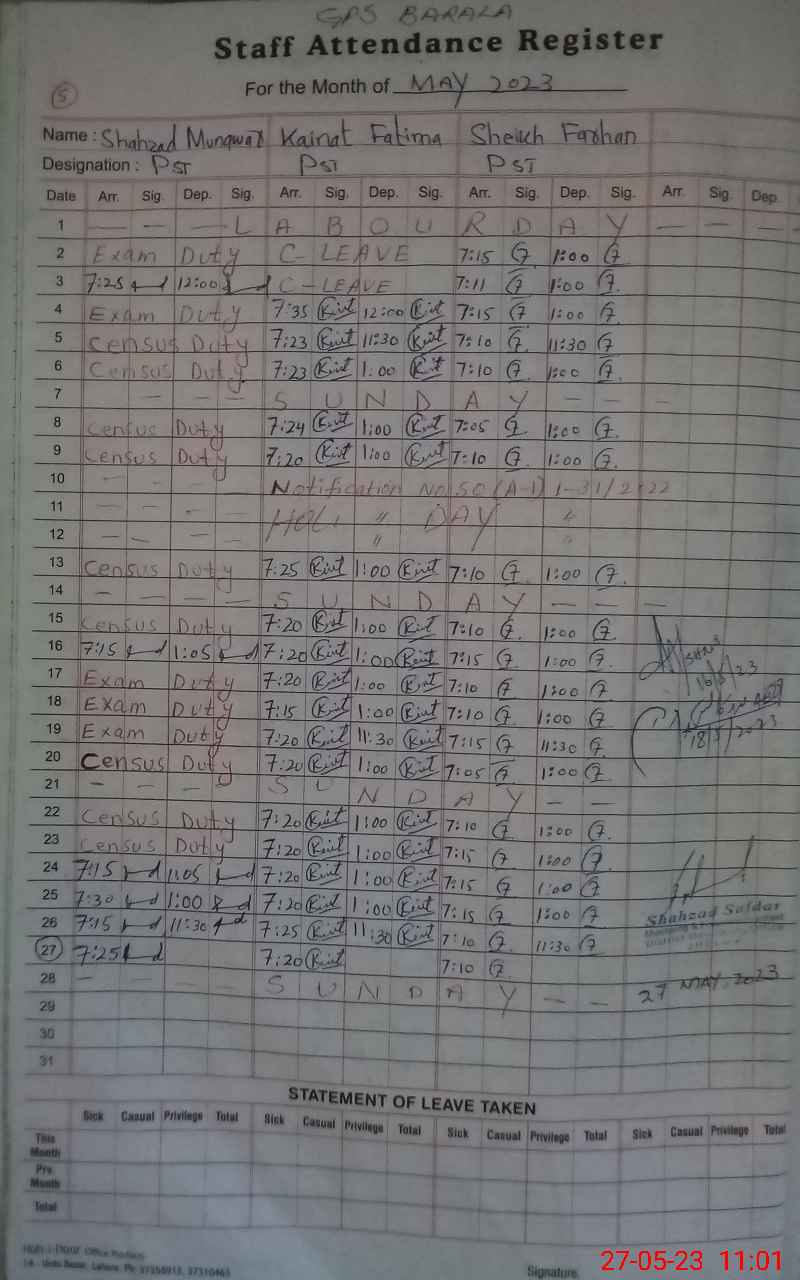 GPS BARALA
Staff Attendance Register
For the Month of MAY 2023
5
Name : Shahzad Munawar Kainat Fatima Sheikh Farhan
Designation : PST PST PST
Date Arr. Sig. Dep. Sig. Arr. Sig. Dep. Sig. Arr. Sig. Dep. Sig. Arr. Sig. Dep.
1 — — — L A B O U R D A Y — — —
2 Exam Duty C-LEAVE 7:15 1:00
3 7:25 12:00 C-LEAVE 7:11 1:00
4 Exam Duty 7:35 12:00 7:15 1:00
5 Census Duty 7:23 11:30 7:10 11:30
6 Census Duty 7:23 1:00 7:10 1:00
7 — — — S U N D A Y — — —
8 Census Duty 7:24 1:00 7:05 1:00
9 Census Duty 7:20 1:00 7:10 1:00
10 — — — Notification No SO (A-1) 1-31/2022
11 — — — HOLI " DAY "
12 — — — " "
13 Census Duty 7:25 1:00 7:10 1:00
14 — — — — S U N D A Y — — —
15 Census Duty 7:20 1:00 7:10 1:00
16 7:15 1:05 7:20 1:00 7:15 1:00
17 Exam Duty 7:20 1:00 7:10 1:00
18 Exam Duty 7:15 1:00 7:10 1:00
19 Exam Duty 7:20 11:30 7:15 11:30
20 Census Duty 7:20 1:00 7:05 1:00
18/5/2023
21 — — — — S U N D A Y — —
22 Census Duty 7:20 1:00 7:10 1:00
23 Census Duty 7:20 1:00 7:15 1:00
24 7:15 1:05 7:20 1:00 7:15 1:00
25 7:30 1:00 7:20 1:00 7:15 1:00
Shahzad Safdar
26 7:15 11:30 7:25 11:30 7:10 11:30
27 7:25 7:20 7:10
28 — — — S U N D A Y — —
27 MAY 2023
29
30
31
STATEMENT OF LEAVE TAKEN
Sick Casual Privilege Total Sick Casual Privilege Total Sick Casual Privilege Total Sick Casual Privilege Total
This Month
Pre. Month
Total
Signature
27-05-23 11:01